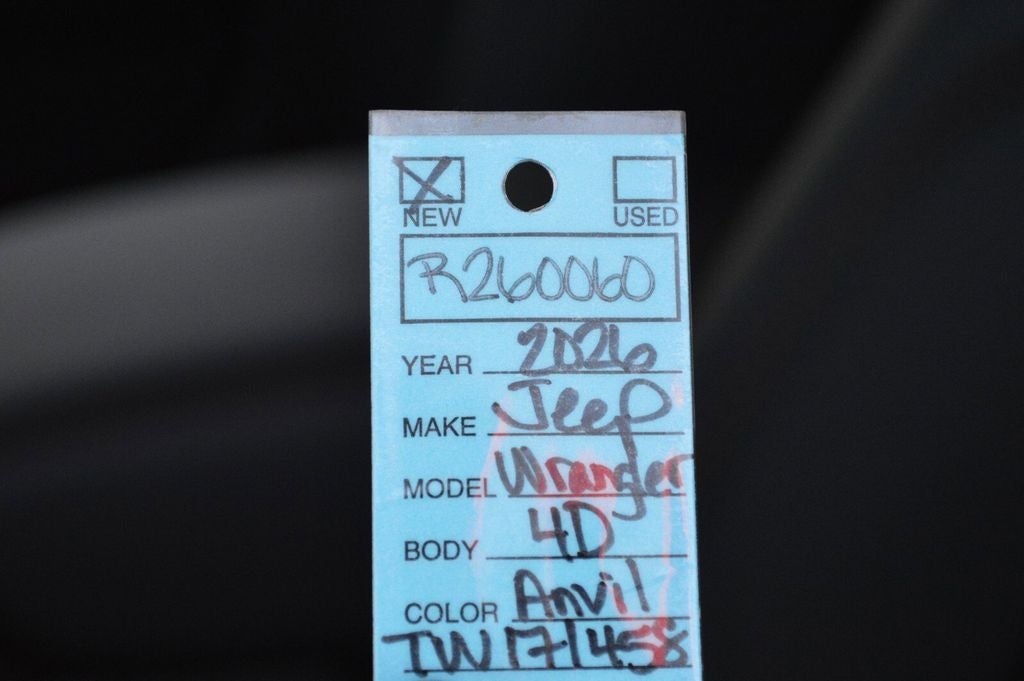 NEW USED
R260060
YEAR 2026
MAKE Jeep
MODEL Wrangler
BODY 4D
COLOR Anvil
TW171458